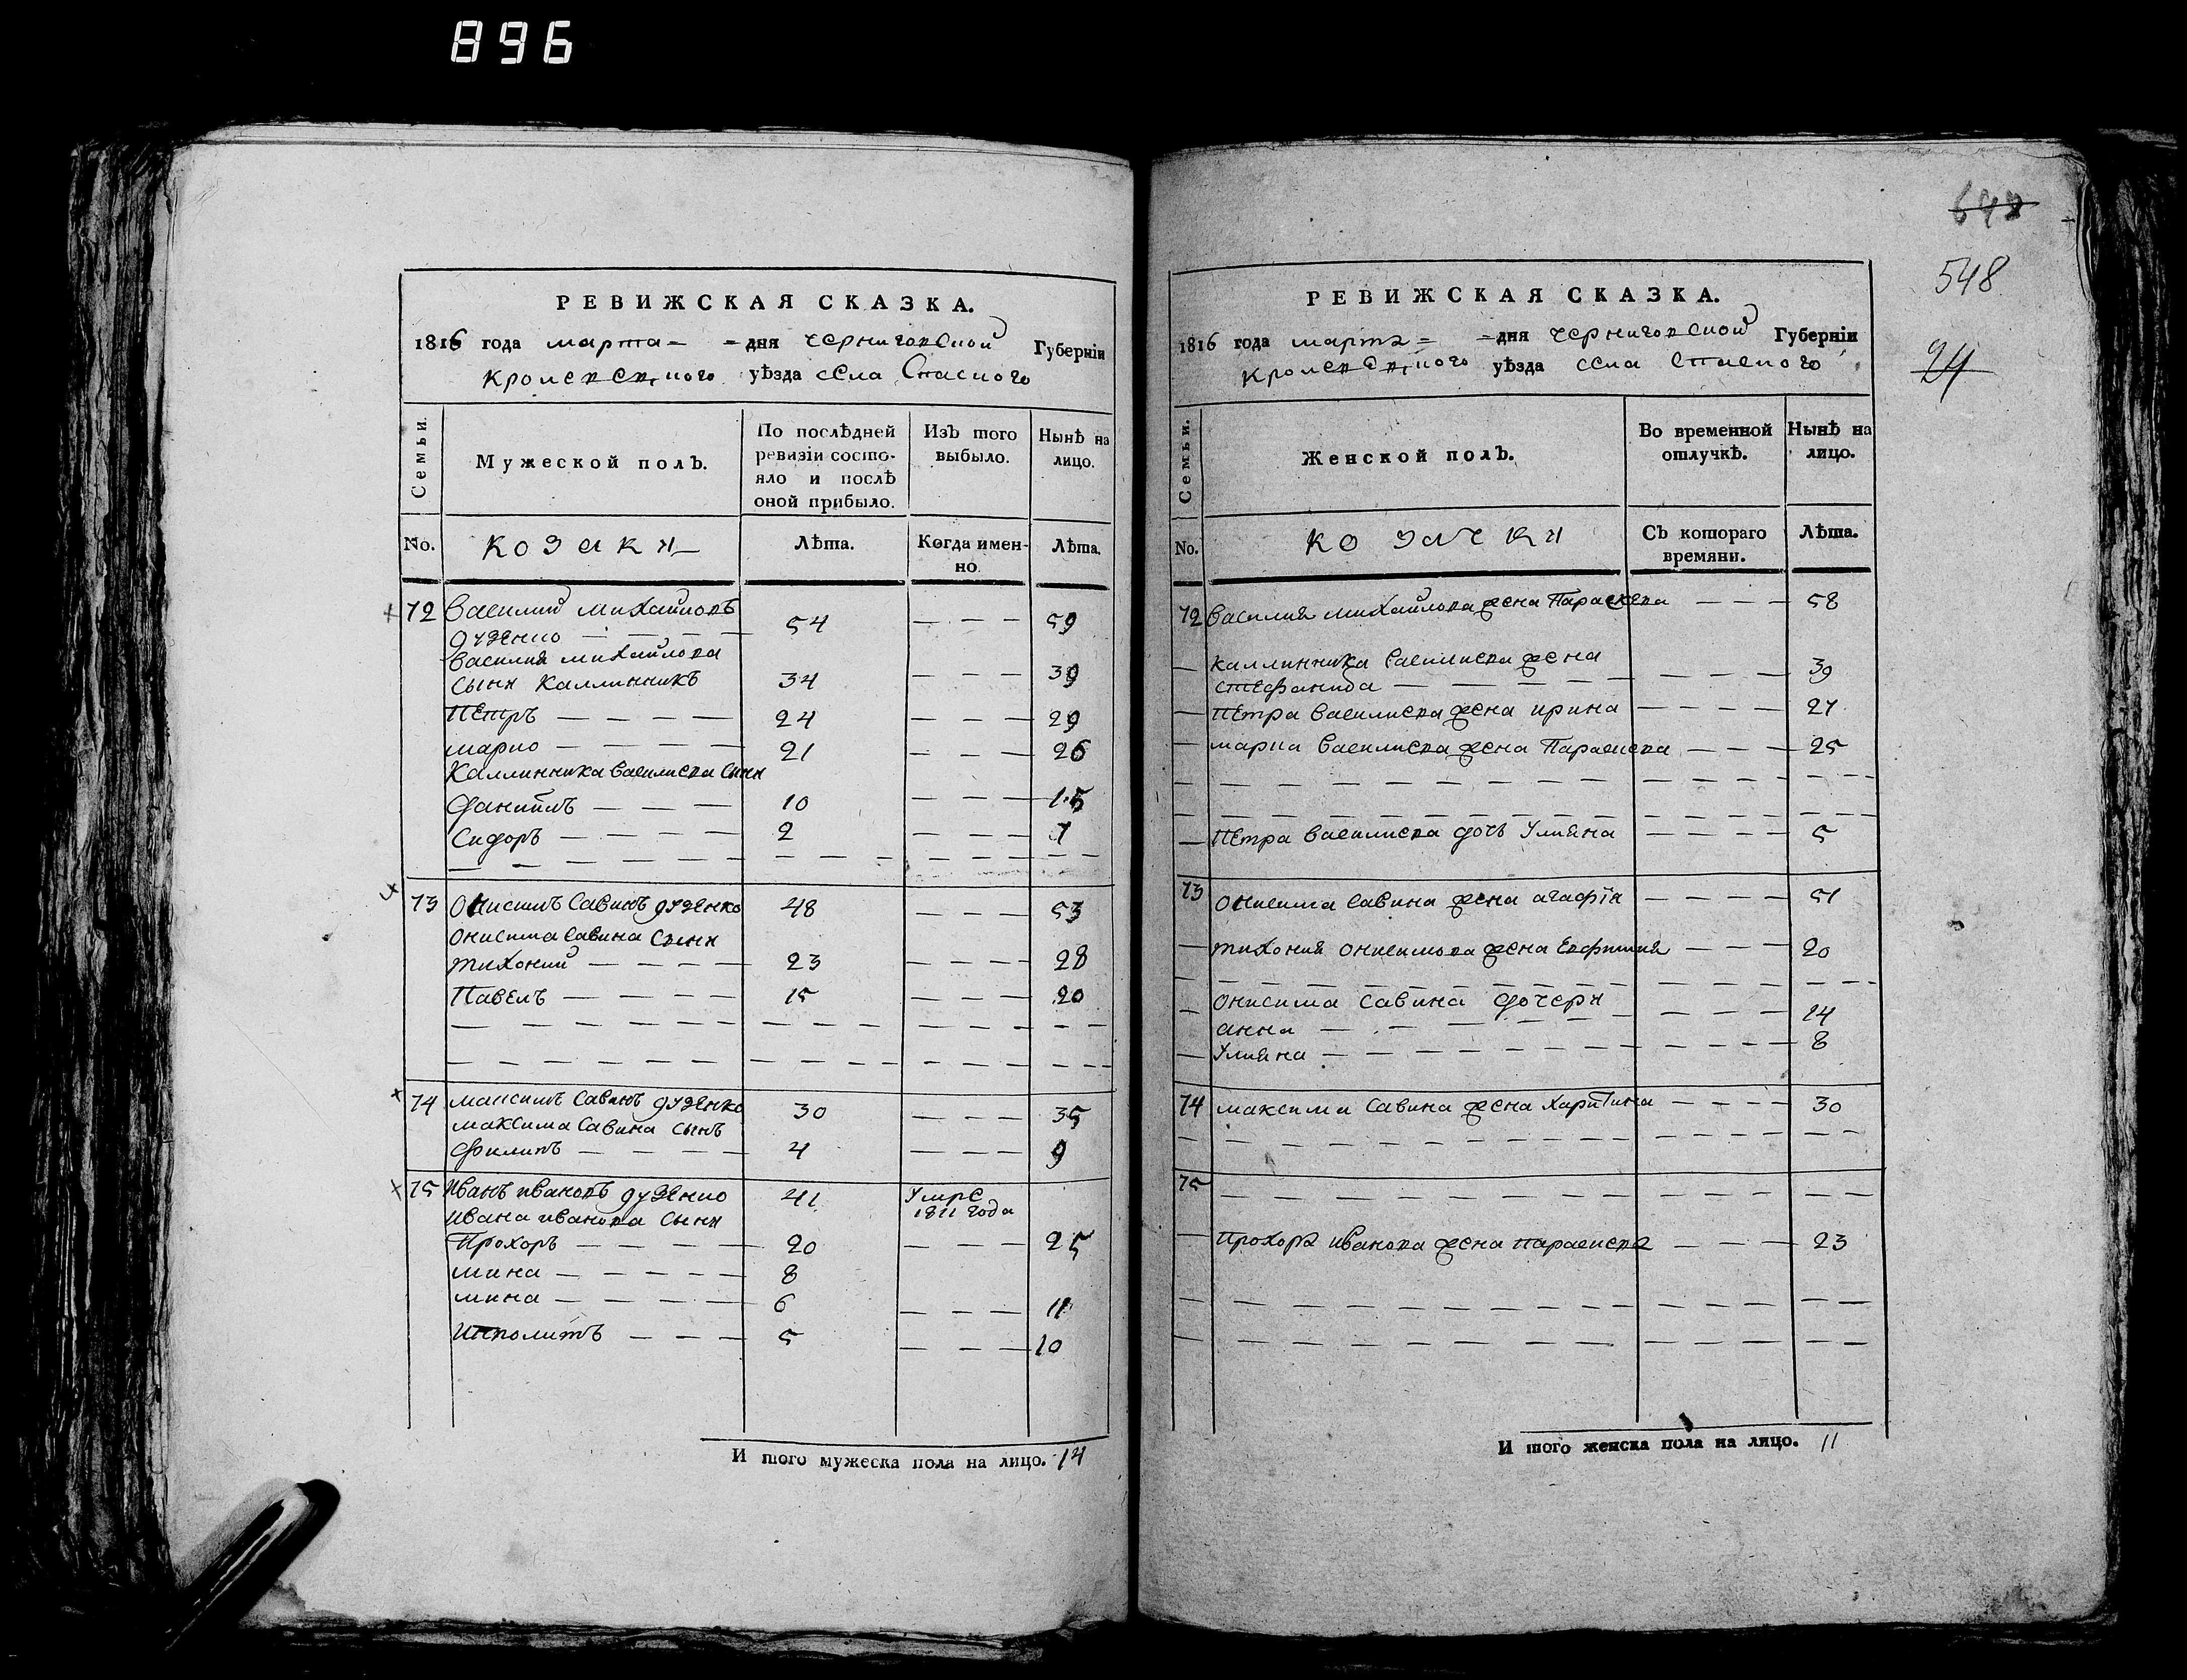 896
РЕВИЖСКАЯ СКАЗКА.
1816 года марта = = дня черниговской Губерніи
кролевецкого уѣзда села Спаского
Семьи.
Мужеской полъ.
По послѣдней
ревизіи состо-
яло и послѣ
оной прибыло.
Изъ того
выбыло.
Нынѣ на
лицо.
No. козаки Лѣта. Когда имен-
но.
Лѣта.
72 Василий михайловъ
дузенко — — — — 54 — — — 59
Василия михайлова
сыни Каллинникъ 34 — — — 39
Петръ — — — — 24 — — — 29
марко — — — — 21 — — — 26
Каллинника василиева сыни
Даниилъ — — — 10 — — — 15
Сидоръ — — — — 2 — — — 7
73 Онисимъ Савинъ дузенко 48 — — — 53
Онисима Савина сыни
тихоний — — — — 23 — — — 28
Павелъ — — — — 15 — — — 20
74 максимъ Савинъ дузенко 30 — — — 35
максима Савина сынъ
Филипъ — — — — 4 — — — 9
75 Иванъ ивановъ дузенко 41 Умре
1811 года
ивана иванова сыни
Прохоръ — — — — 20 — — — 25
мина — — — — — 8
мина — — — — — 6 — — — 11
Иполитъ — — — 5 — — — 10
И того мужеска пола на лицо. 14
548
24
РЕВИЖСКАЯ СКАЗКА.
1816 года марта = = дня черниговской Губерніи
кролевецкого уѣзда села Спаского
Семьи.
Женской полъ.
Во временной
отлучкѣ.
Нынѣ на
лицо.
No. козачки Съ котораго
времяни.
Лѣта.
72 Василия михайлова жена Параскева — — — 58
— Каллинника василиева жена
стефанида — — — — — — — — 39
— Петра василиева жена ирина — — — — 27
— марка василиева жена Параскева — — — 25
— Петра василиева дочь Улияна — — — — 5
73 Онисима Савина жена агафія — — — — 51
— тихония онисимова жена Евфимия — — — 20
— Онисима Савина дочери
анна — — — — — — — — 14
— Улияна — — — — — — — — 8
74 максима Савина жена Харитина — — — — 30
75
— Прохора иванова жена параскева — — — 23
И того женска пола на лицо. 11